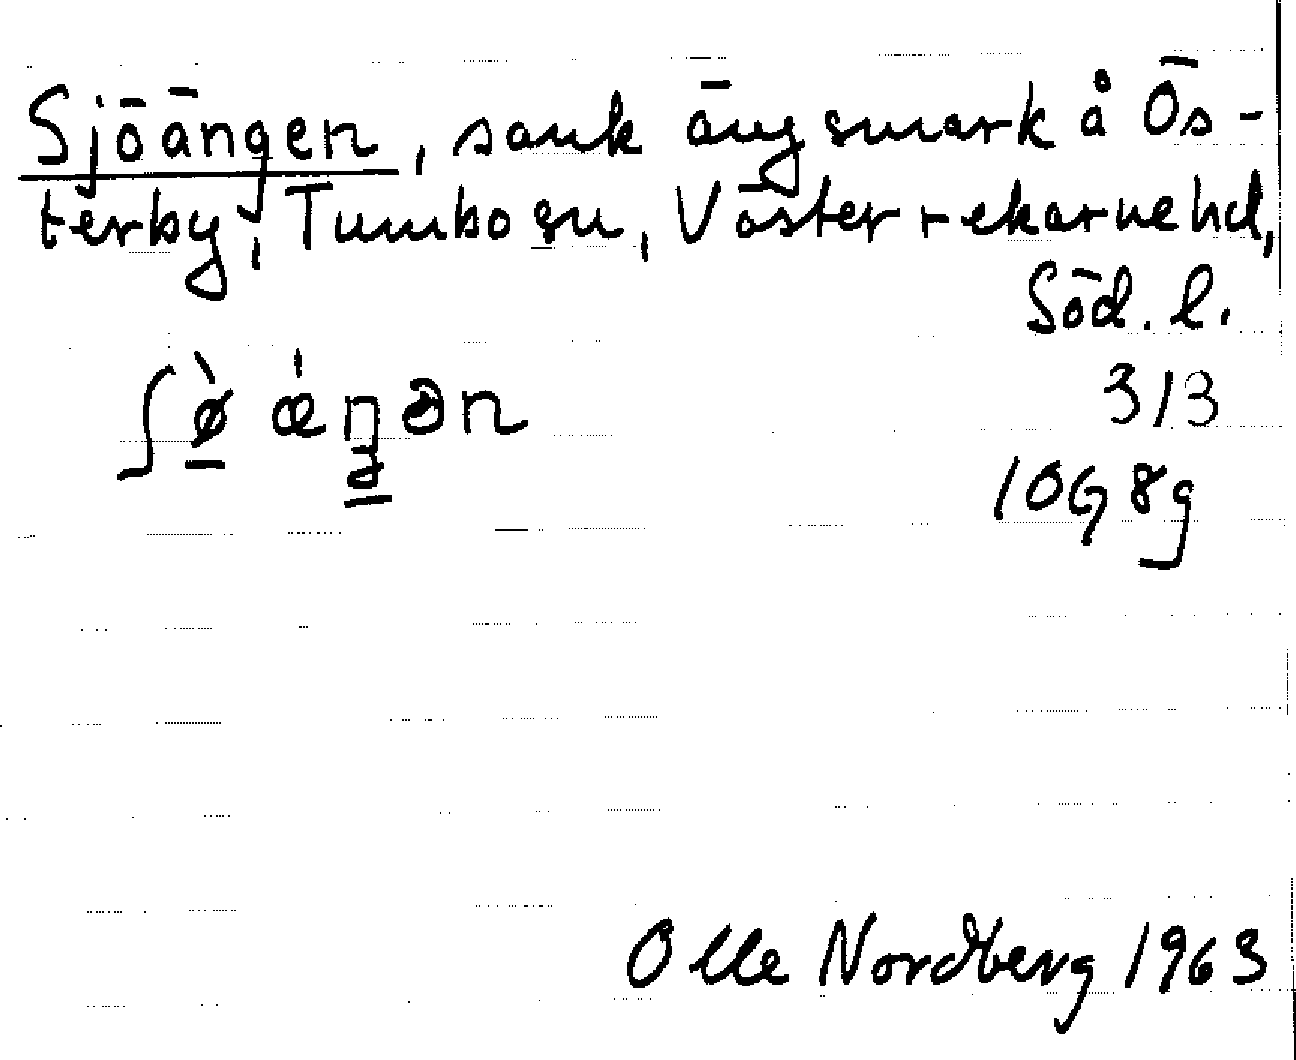 Sjöängen, sank ängsmark å Ös-
terby, Tumbo sn, Västerrekarne hd,
Söd. l.
313
10G 8g
Olle Nordberg 1963